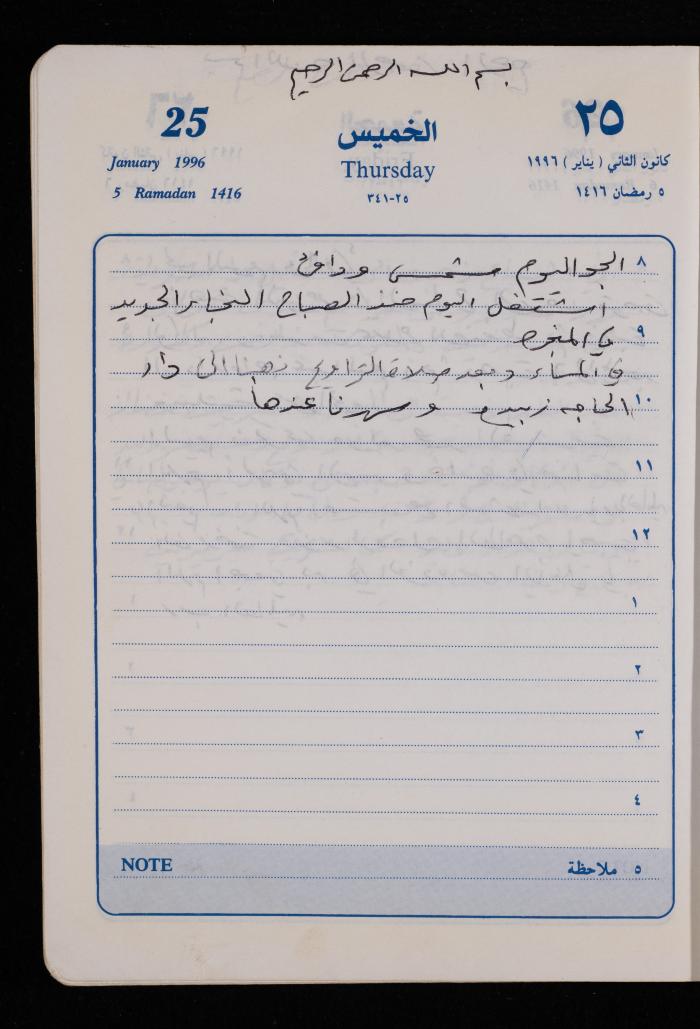 بسم الله الرحمن الرحيم
25 الخميس ٢٥
January 1996 Thursday كانون الثاني ( يناير ) ١٩٩٦
5 Ramadan 1416 ٣٤١-٢٥ ٥ رمضان ١٤١٦
٨ الجو اليوم مشمس ودافئ
اشتغل اليوم منذ الصباح الخباز الجديد
٩ في المخبز
في المساء وبعد صلاة التراويح ذهبنا الى دار
١٠ الحاجه زبيده وسهرنا عندها
١١
١٢
١
٢
٣
٤
NOTE ٥ ملاحظة